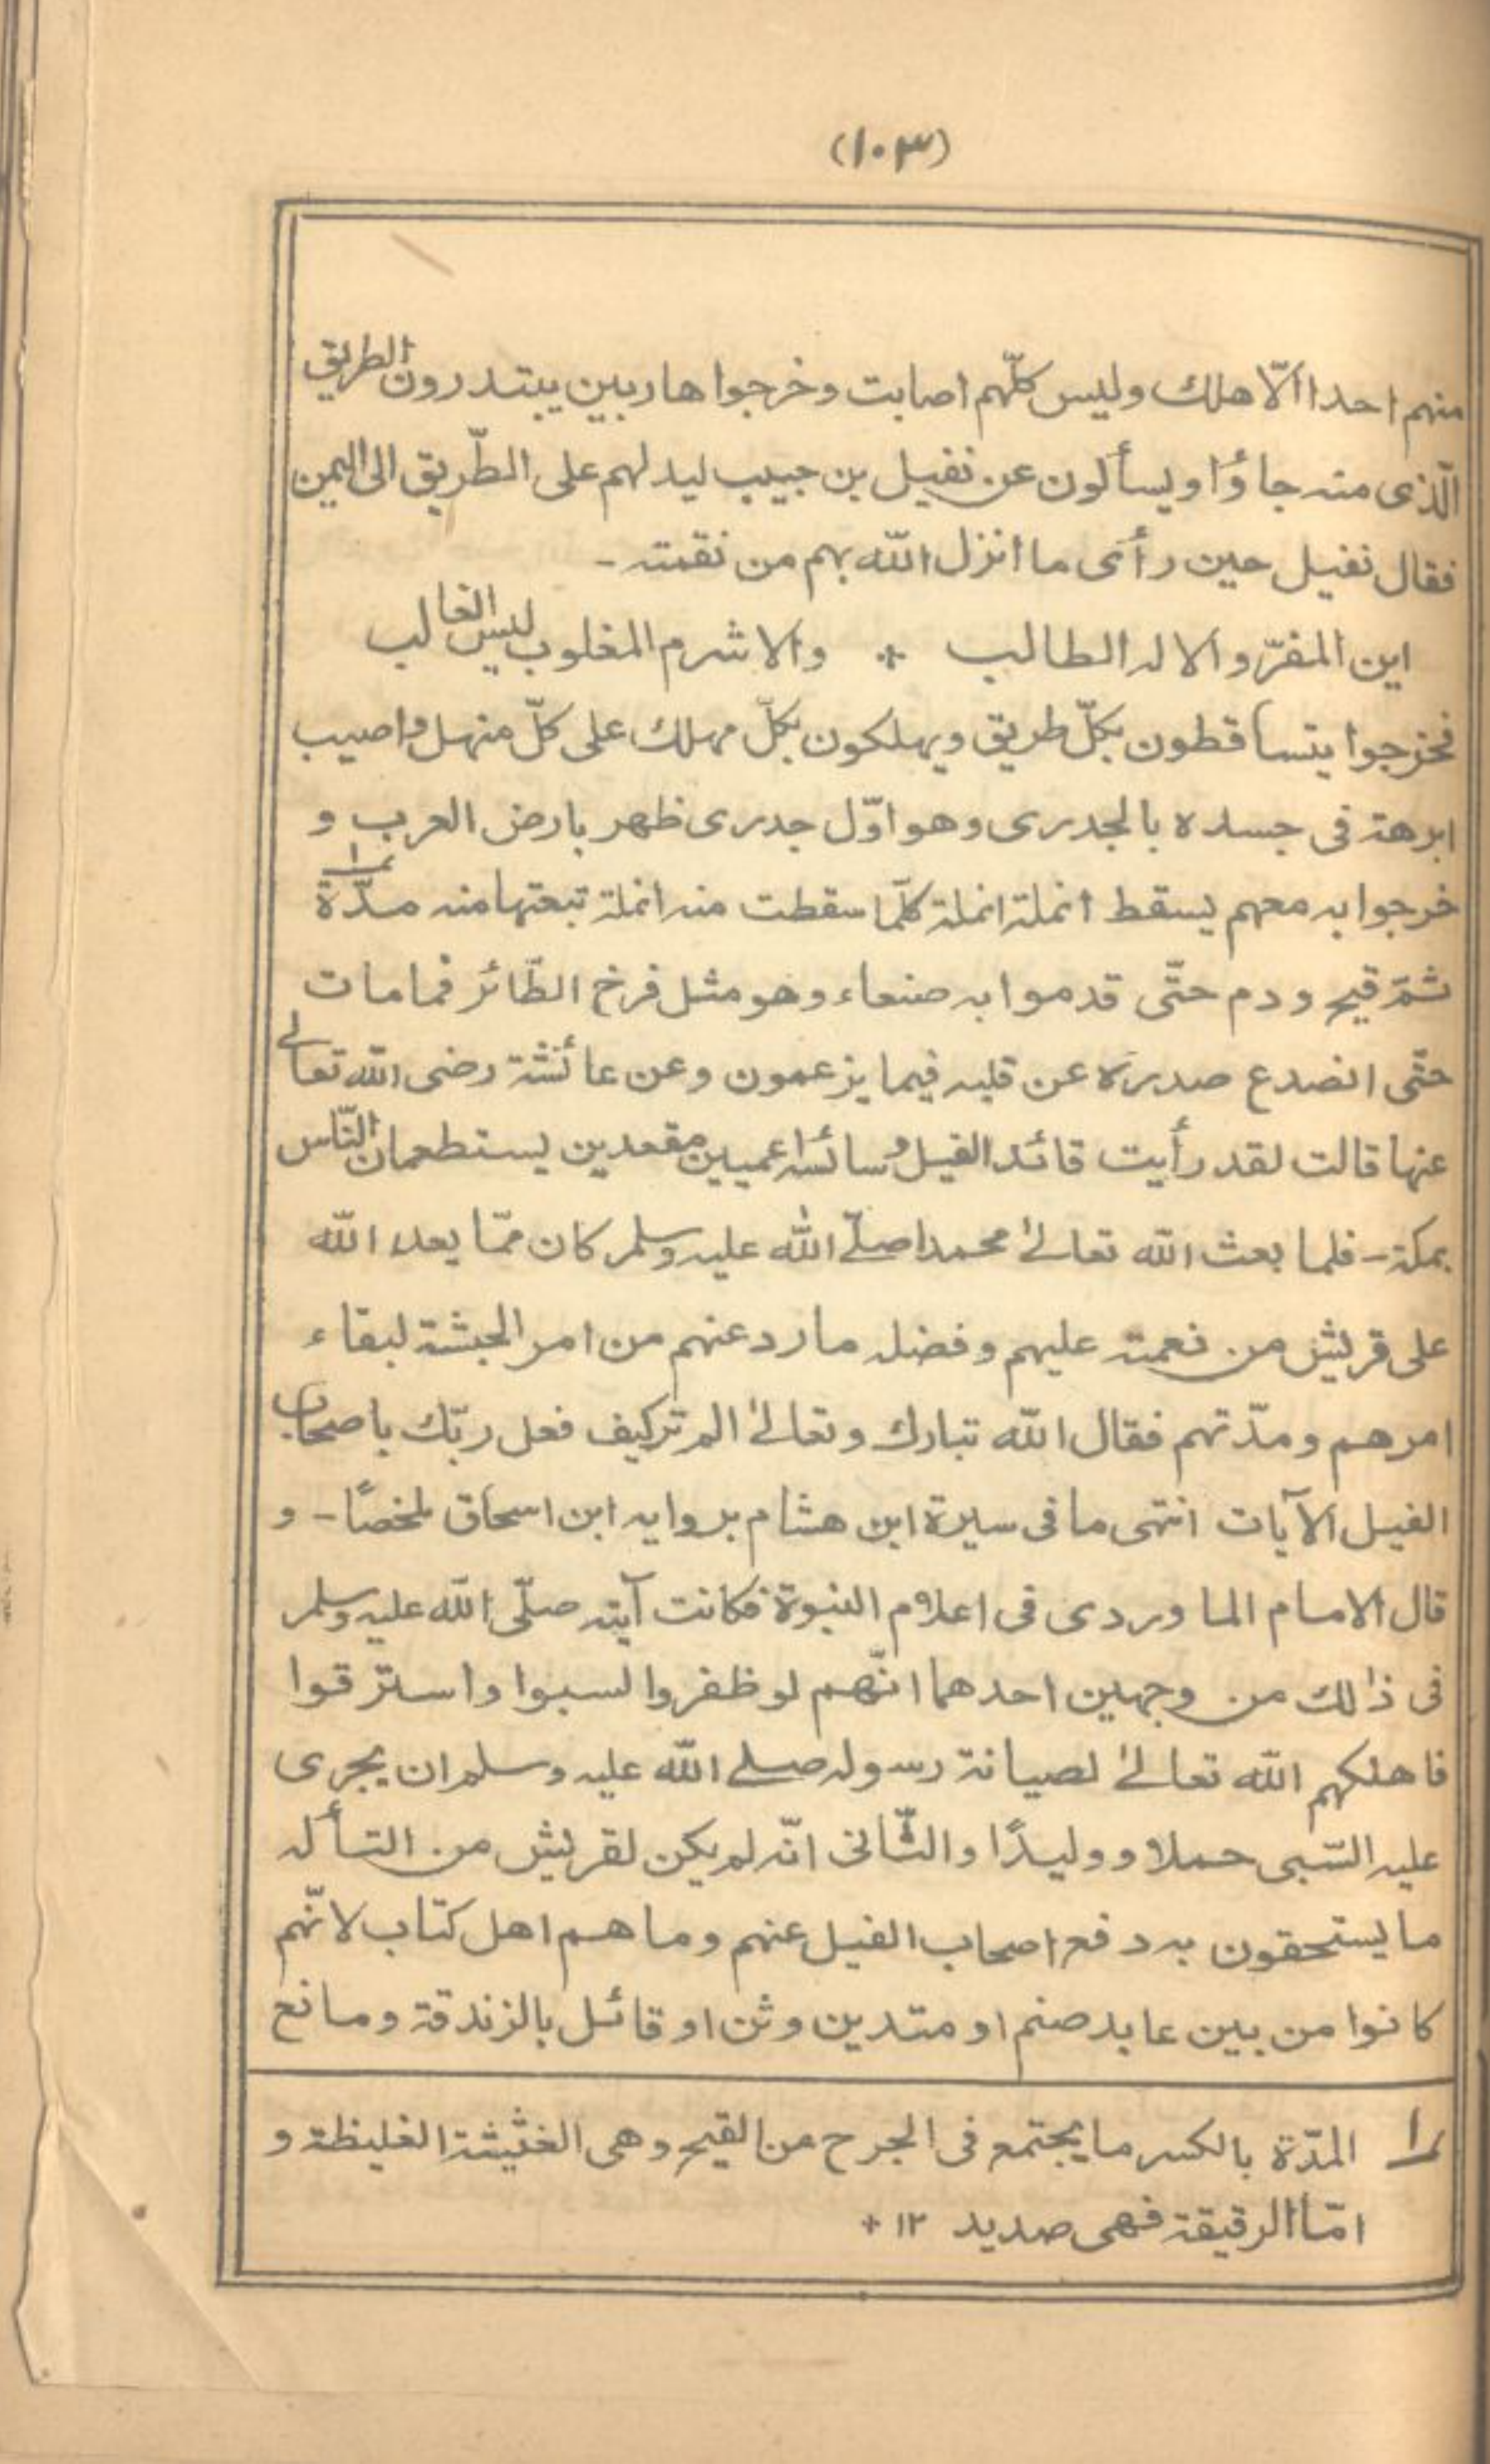 (١٠٣)
منهم احدا الّا هلك وليس كلّهم اصابت وخرجوا هاربين يبتدرون الطريق
الّذى منه جاؤا ويسألون عن نفيل بن حبيب ليدلهم على الطّريق الى اليمن
فقال نفيل حين رأى ما انزل الله بهم من نقمته ـ
اين المفرّ والاله الطالب * والاشرم المغلوب ليس الغالب
فخرجوا يتساقطون بكلّ طريق ويهلكون بكلّ مهلك على كلّ منهل واصيب
ابرهة فى جسده بالجدرى وهو اوّل جدرى ظهر بارض العرب و
خرجوا به معهم يسقط انملة انملة كلّما سقطت منه انملة تبعتها منه مدّة ١
ثمّ قيح ودم حتّى قدموا به صنعاء وهو مثل فرخ الطّائر فما مات
حتّى انصدع صدره عن قلبه فيما يزعمون وعن عائشة رضى الله تعالى
عنها قالت لقد رأيت قائد الفيل وسائسه اعميين مقعدين يستطعمان النّاس
بمكة ـ فلما بعث الله تعالىٰ محمدا صلّے الله عليه وسلم كان ممّا يعد الله
على قريش من نعمته عليهم وفضله ما رد عنهم من امر الحبشة لبقاء
امرهم ومدّتهم فقال الله تبارك وتعالىٰ الم تركيف فعل ربّك باصحاب
الفيل الآيات انتهى ما فى سيرة ابن هشام بروايه ابن اسحاق ملخصًا ـ و
قال الامام الماوردى فى اعلام النبوة فكانت آيته صلّى الله عليه وسلم
فى ذالك من وجهين احدهما انّهم لو ظفروا لسبوا واسترقوا
فاهلكهم الله تعالىٰ لصيانة رسوله صلے الله عليه وسلم ان يجرى
عليه السّبى حملا ووليدًا والثّانى انّه لم يكن لقريش من التأله
ما يستحقون به دفع اصحاب الفيل عنهم وما هم اهل كتاب لانّهم
كانوا من بين عابد صنم او متدين وثن او قائل بالزندقة ومانع
١ المدّة بالكسر ما يجتمع فى الجرح من القيح وهى الغثيثة الغليظة و
امّا الرقيقة فهى صديد ١٢ +